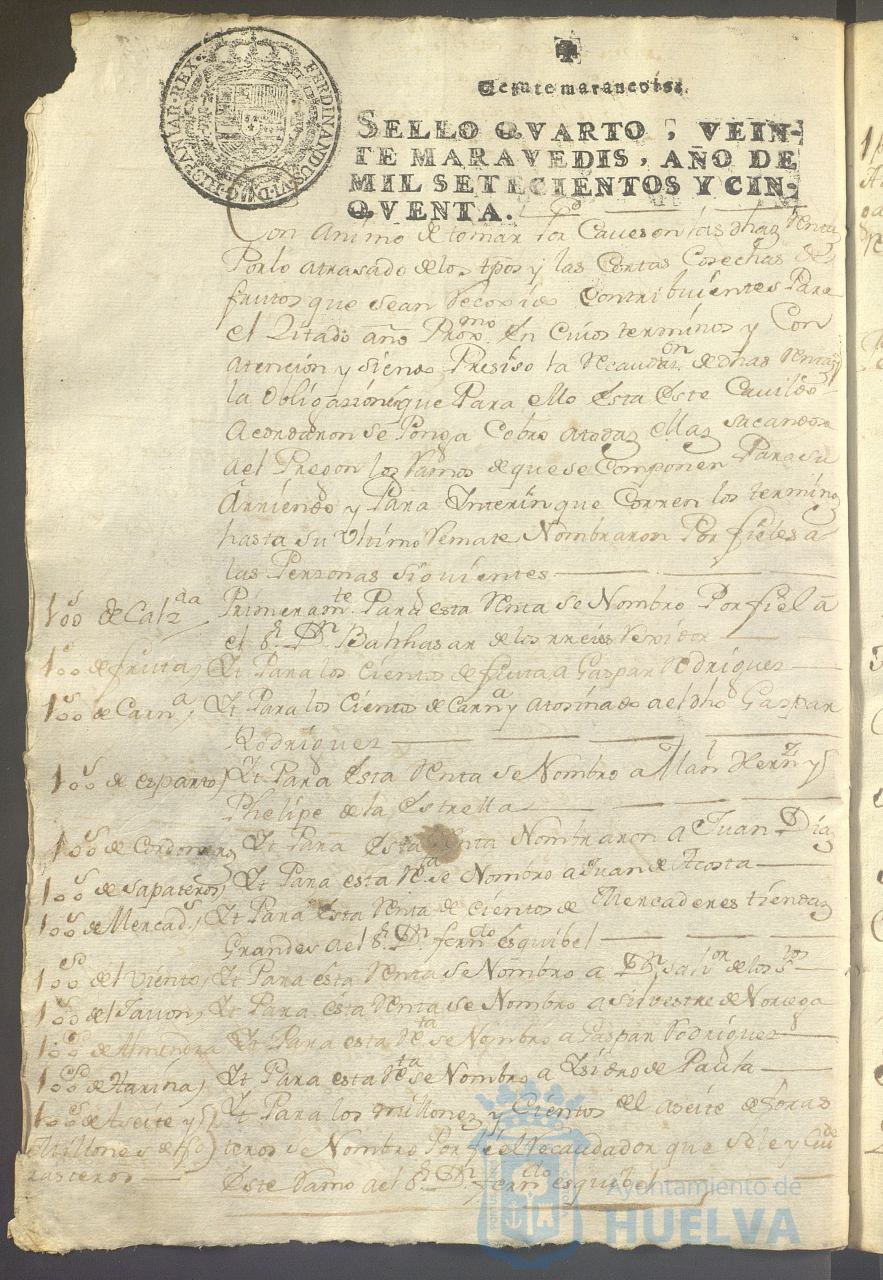 FERDINANDUS VI D G HISPANIAR REX
SELLO QVARTO, VEIN-
TE MARAVEDIS, AÑO DE
MIL SETECIENTOS Y CIN-
QVENTA.
Con animo de tomar por en las dhas Rentas
Por lo atrasado de los tpos y las Cortas Cosechas de
frutos que sean Recoxido Contribuientes Para
el Zitado año Proxmo En Cuios terminos y Con
atencion y siendo Presiso la Recaudaon de dhas Rentas
la obligazion que Para ello Esta Este Cavildo
Acordaron se Ponga Cobro a todas Ellas sacandose
a el Pregon los Ramos de que se Componen Para su
Arriendo y Para Interin que Corren los terminos
hasta su Ultimo Remate Nombraron Por fieles a
las Personas siguientes
1oos de Calzda Primeramte Para esta Renta se Nombro Por fiel a
el Sr Dn Balthasar de los Reies Rexidor
1oos de fruta, Yt Para los Cientos de fruta, a Gaspar Rodriguez
1oos de Carna, Yt Para los Cientos de Carne y atosinado a el dho Gaspar
Rodriguez
1oos de esparto, Yt Para Esta Renta se Nombro a Manl Hernz y
Phelipe de la Estrella
1oos de Yt Para Esta Renta Nombraron a Juan Diaz
1oos de Sapateros, Yt Para esta Rta se Nombro a Juan de Acosta
1oos de Mercads, Yt Para Esta Renta de Cientos de Mercaderes tiendas
Grandes a el Sr Dn ferndo esquibel
1oos del Viento, Yt Para esta Renta se Nombro a Dn Salvor de los Stos
1oos de Javon, Yt Para esta Renta se Nombro a Silvestre de Noriega
1oos de Almendra Yt Para esta Rta se Nombro a Gaspar Rodriguez
1oos de Harina, Yt Para esta Rta se Nombro a Ysidro de Paula
1oos de Aseite y Yt Para los millones y Cientos del aseite de foras
Millones de fo teros se Nombro Por fiel Recaudador que sele y
rasteros Este Ramo a el Sr Dn ferndo esquibel
Ayuntamiento de
HUELVA